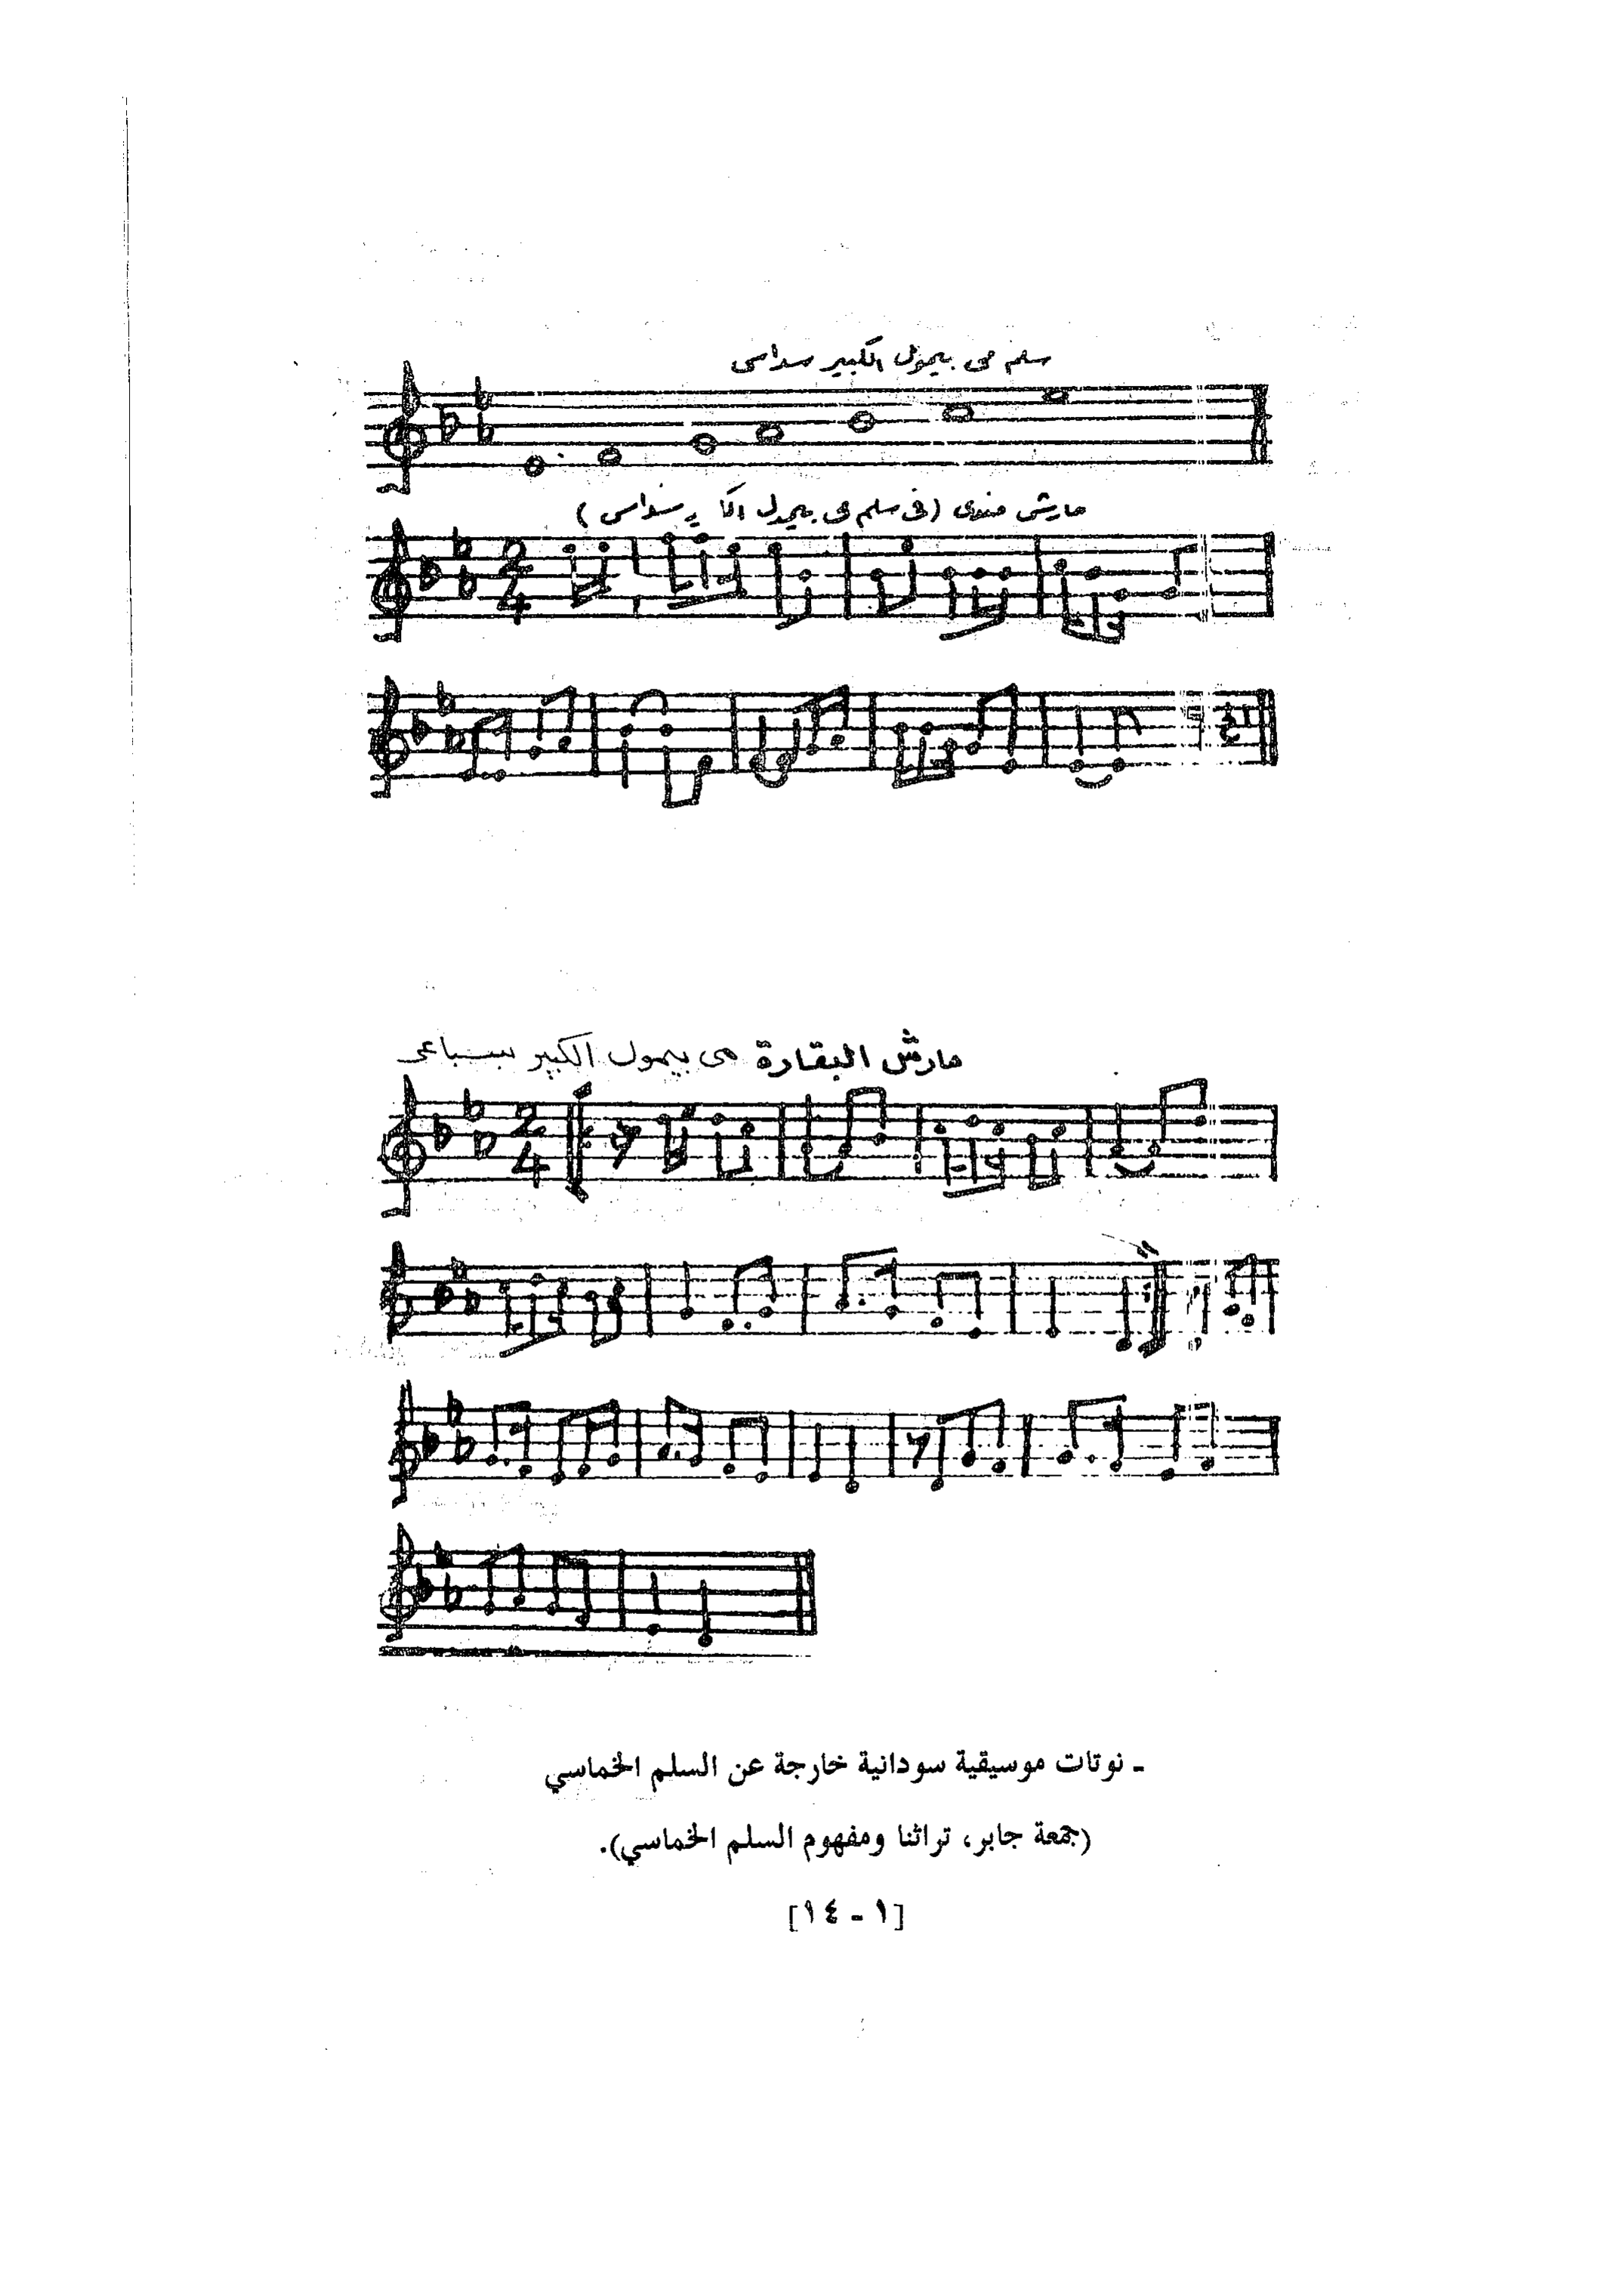 سلم مى بيمول الكبير سداسى
مارش (فى سلم مى بيمول سداسى)
2
4
مارش البقارة مى بيمول الكبير سباعى
2
4
ـ نوتات موسيقية سودانية خارجة عن السلم الخماسي
(جمعة جابر، تراثنا ومفهوم السلم الخماسي).
[١ - ١٤]